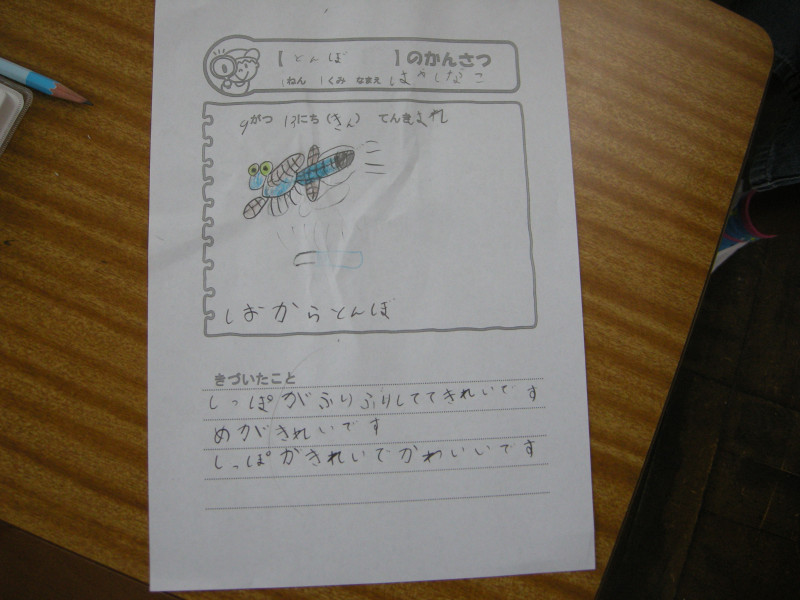 【とんぼ】のかんさつ
1ねん 1くみ なまえ
9がつ 13にち(きん) てんきはれ
しおからとんぼ
きづいたこと
しっぽがふりふりしててきれいです
めがきれいです
しっぽがきれいでかわいいです